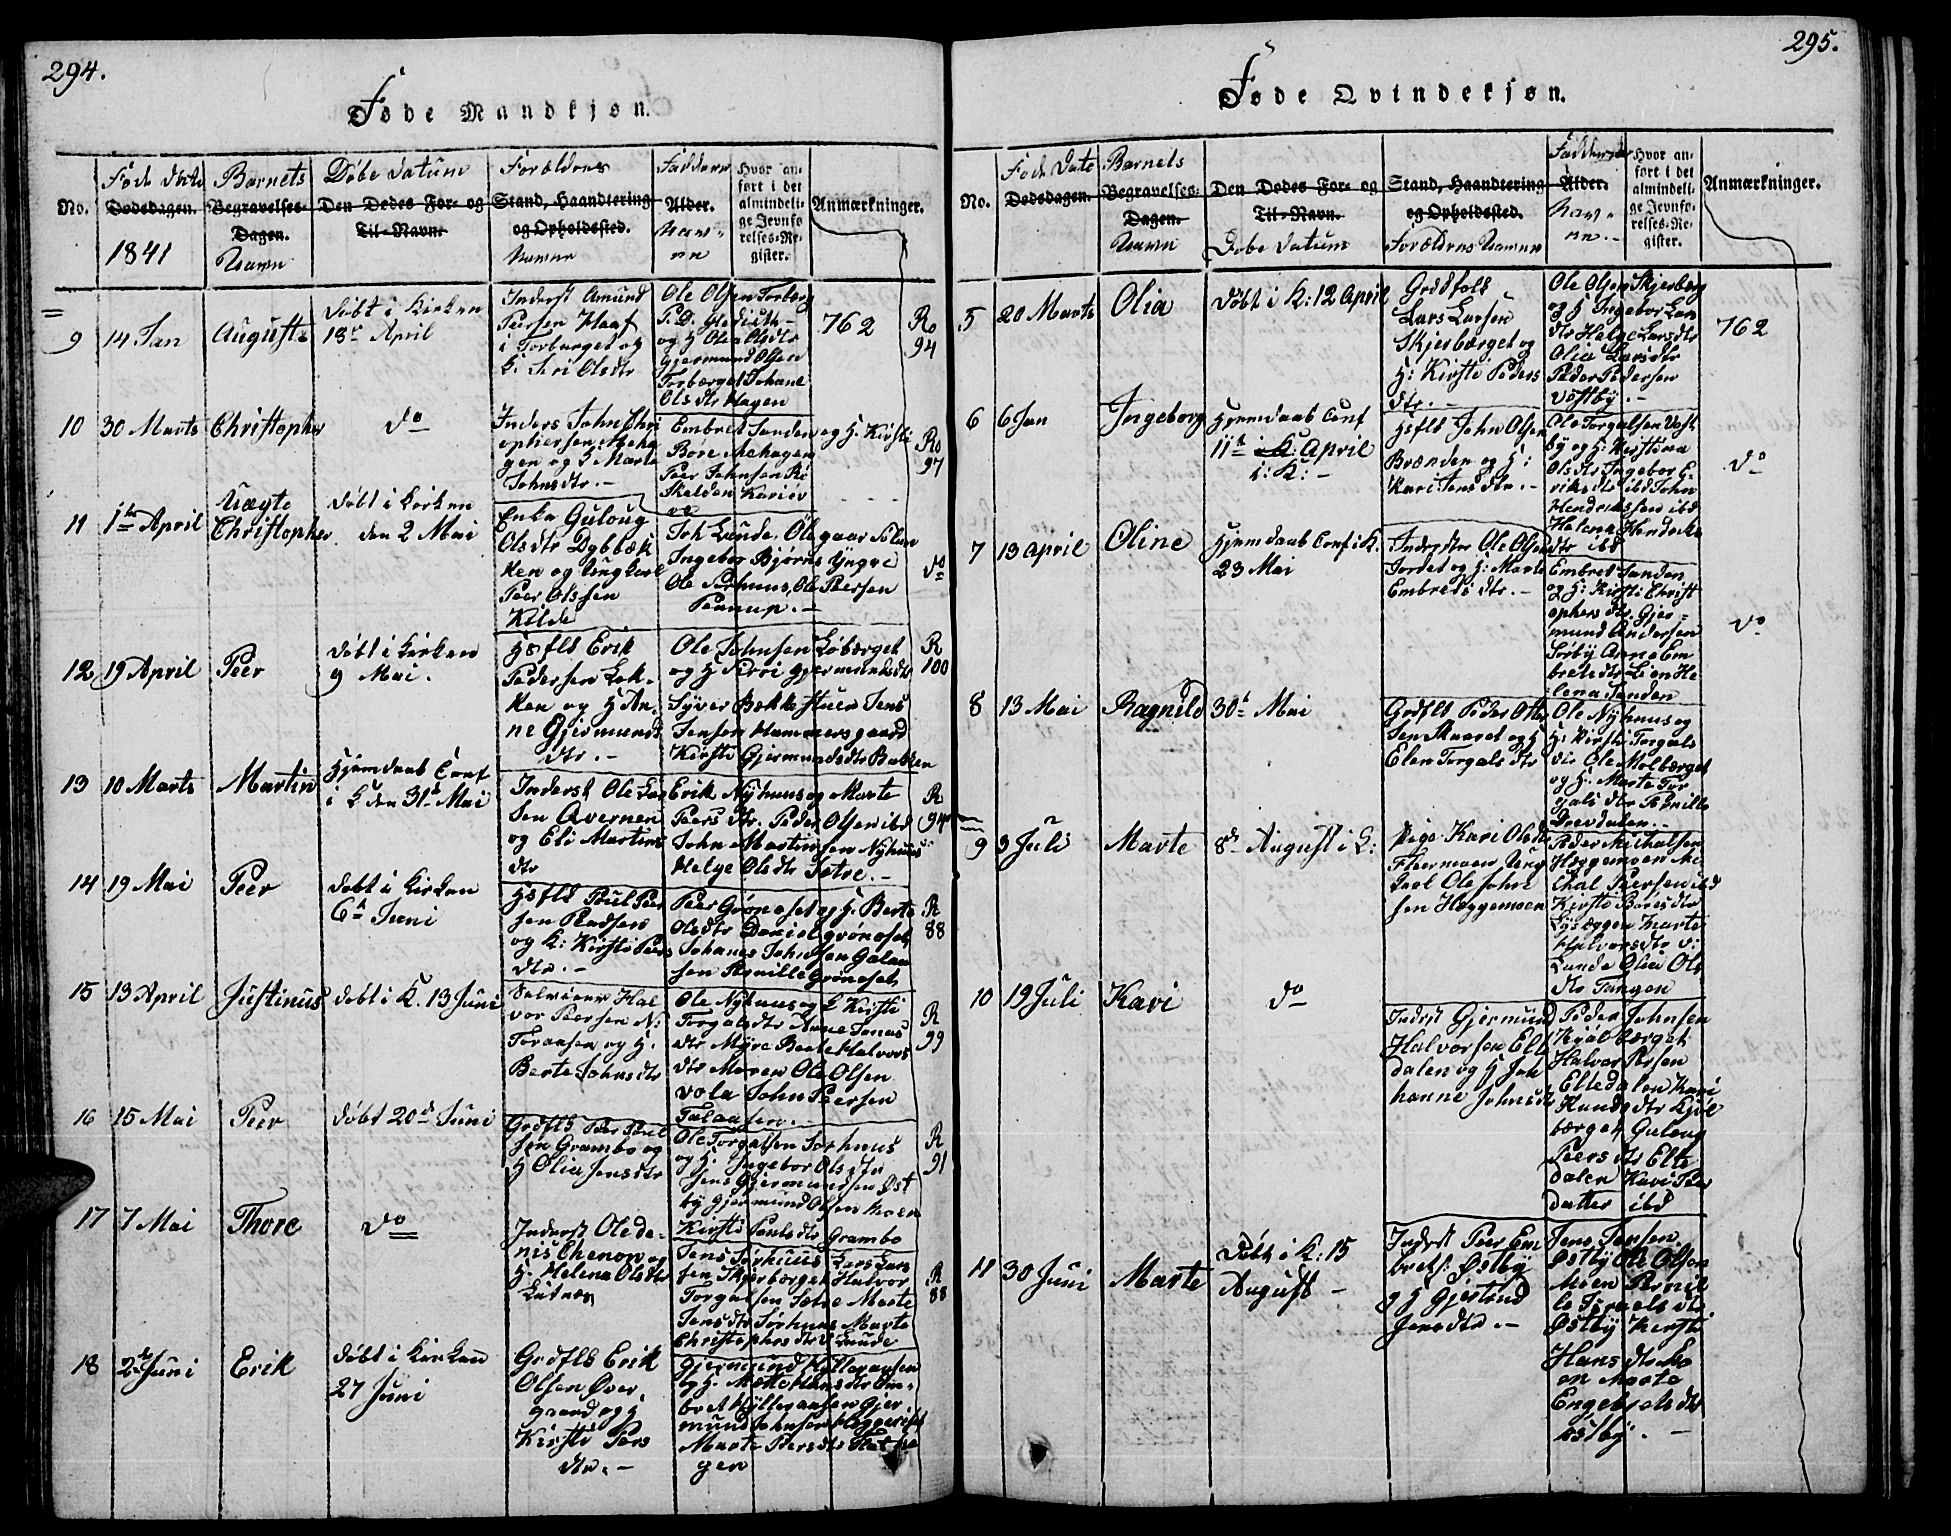 294.
Føde Mandkjøn.
No.
Føde Date
Dødsdagen.
1841
Barnets
Begravelses-
Dagen.
Navn
Døbe Datum
Den Dødes For- og
Til-Navn.
Forældrenes
Stand, Haandtering
og Opholdssted.
Navne
Faddernes
Alder.
Hvor an-
ført i det
almindeli-
ge Jevnfø-
relses-Re-
gister.
Anmærkninger.
9
14 Jan
August
Døbt i Kirken
18de April
Inderst Amund
i Torberget og
Ole Olsen Torberg
og H Olia Olsdtr
Gjermund Olsen
Torberget Johane
Olsdtr Hagen
762
Ro
94
10
30 Marts
Christopher
do
Inders John Chri
ophersen Meha
gen og H Marte
Johnsdtr. –
Embret Sanden og H. Kirsti
Børe Mehagen
Peer Johnsen
Ro
97
11
1ste April
Uægte
Christopher
Døbt i Kirken
den 2 Mai
Enke Guloug
Olsdtr Dybbæk
ken og Ungkarl
Peer Olssen
Kilde
Joh Lunde, Ole
Ingebor Bjørn
Ole Nyhuus, Ole Peersen
do
12
19 April
Peer
Døbt i Kirken
9 Mai.
Hsfls Erik
Pedersen Løk-
ken og H An-
ne Gjermunds
dtr. –
Ole Johnsen Løbærget
og H Siri Gjermundsdtr
Syver Bækkestuen Jens
Jensen Hammersgaard
Kirsti Gjermundsdtr Bakken
R
100
13
10 Marts
Martin
Hjemdøb Conf
i K den 31te Mai
Inderst Ole Lar
sen Qvernen
og Eli Martins
dtr
Erik Nyhuus og Marte
Peersdtr. Peder Olsen ibd
John Martinsen Nyhuus
Helge Olsdtr Sætre. –
R
94
14
19 Mai
Peer
Døbt i Kirken
6te Juni
Hsfls Poul Peer
sen Pladsen
og K: Kirsti Peers
dtr. –
Peer Grønoset og H. Berte
Olsdtr Daniel Grønoset
Johanes Johnsen Galaa
sen Pernille Grønoset
R
88
15
13 April
Justinus
Døbt i K. 13 Juni
Selveier Hal
vor Peersen N:
Foraasen og H:
Berte Johnsdtr
Ole Nyhuus og H Kirsti
Torgalsdtr Anne Jonas
dtr Myre Berte Halvors
dtr Moren Ole Olsen
vola John Peersen
R
99
16
15 Mai
Peer
Døbt 20de Juni
Grdfls Peer Poul
sen Grambo og
H Olia Jensdtr
Ole Torgalsen Sørhuus
og H. Ingebor Olsdtr
Jens Gjermundsen Øst
by Gjermund Olsen Moen
Kirsti Poulsdtr Grambo
R
91
17
7 Mai
Thore
do
Inderst Ole De-
H. Helena Olsdtr
Lutnes
Jens Sørhuus Lars Lars
sen Skjerbærget Halvor
Torgalsen Sætre Marte
Jensdtr Sørhuus Marte
Christophersdtr Lunde
R
88
18
2de Juni
Erik
Døbt i Kirken
27 Juni
Grdfls Erik
Olsen Øver-
gaard og H
Kirsti Pers
dtr. –
Gjermund Hylleraasen
og H. Mætte Hansdtr Em-
bret Hylleraasen Gjer
mund Johnsen
Marte Peersdtr
gen
295.
Føde Qvindekjøn.
No.
Føde Date
Dødsdagen.
Barnets
Begravelses-
Dagen.
Navn
Den Dødes For- og
Til-Navn.
Døbe Datum
Stand, Haandtering
og Opholdssted.
Forældrens Navne
Faddernes
Alder.
Nav-
ne. –
Hvor an-
ført i det
almindeli-
ge Jevnfø-
relses-Re-
gister.
Anmærkninger.
5
20 Marts
Olia
Døbt i K: 12 April
Grdfols
Lars Larsen
Skjerbærget og
H: Kirsti Peders
dtr. –
Ole Olsen Skjerberg
og H Ingebor Lars
dtr Helge Larsdtr
Olia Larsdtr
Peder Pedersen
Østby. –
762
6
6 Jan
Ingeborg
Hjemdøb Conf
11te i K April
i: K: –
Hsfls John Olsen
Brænden og H:
Kari Jensdtr. –
Ole Torgalsen Øst
by og H: Kirstina
Olsdtr Ingebor E
riksdtr ibd John
Hendriksen ibd
Helena Hendriks
dtr ibd
do
7
13 April
Oline
Hjemdøb Conf i K.
23 Mai
Inderster Ole Olsen
Jordet og H: Marte
Embretsdtr. –
Embret Sanden
og H: Kirsti Christ
ophersdtr. Gjer-
mund Andersen
Sørby Anne Em
bretsdtr Lien He
lena Sanden
do
8
13 Mai
Ragnild
30te Mai
Grdfls Peder Otter
sen Skaaret og H
Elen Torgalsdtr
Ole Nyhuus og
H: Kirsti Torgals
dtr Ole Molbærget
og H. Marte Tor
galsdtr Pernille
Drevdalen. –
9
9 Juli
Marte
8de August i K:
Pige Kari Olsdtr
Flermoen Ung
karl Ole John
sen Heggemoen
Peder Michalsen
Heggemoen Mi
chal Peersen ibd
Kirsti Børesdtr
Lysæggen Marte
Halvorsdtr v:
Lunde Olia Ols
dtr Tangen
10
19 Juli
Kari
do
Inderst Gjermund
Halvorsen Elt
dalen og H Joh
hanne Johnsdtr
Peder Johnsen
Kjølbærget
Halvor Persen
Eltedalen Kari
Knudsdtr Kjøl
bærget Guloug
Peersdtr Elte
dalen Kari Peer
datter ibd
11
30 Juni
Marte
Døbt i K: 15
August –
Inderst Peer Em
brets: Østby
og H Gjertrud
Jensdtr. –
Jens Jensen
Østby Ole Olsen
Moen Pernil
le Israelsdtr
Østby Kersti
Hansdtr Mo
en Marte
Engebretsdtr
Østby. –